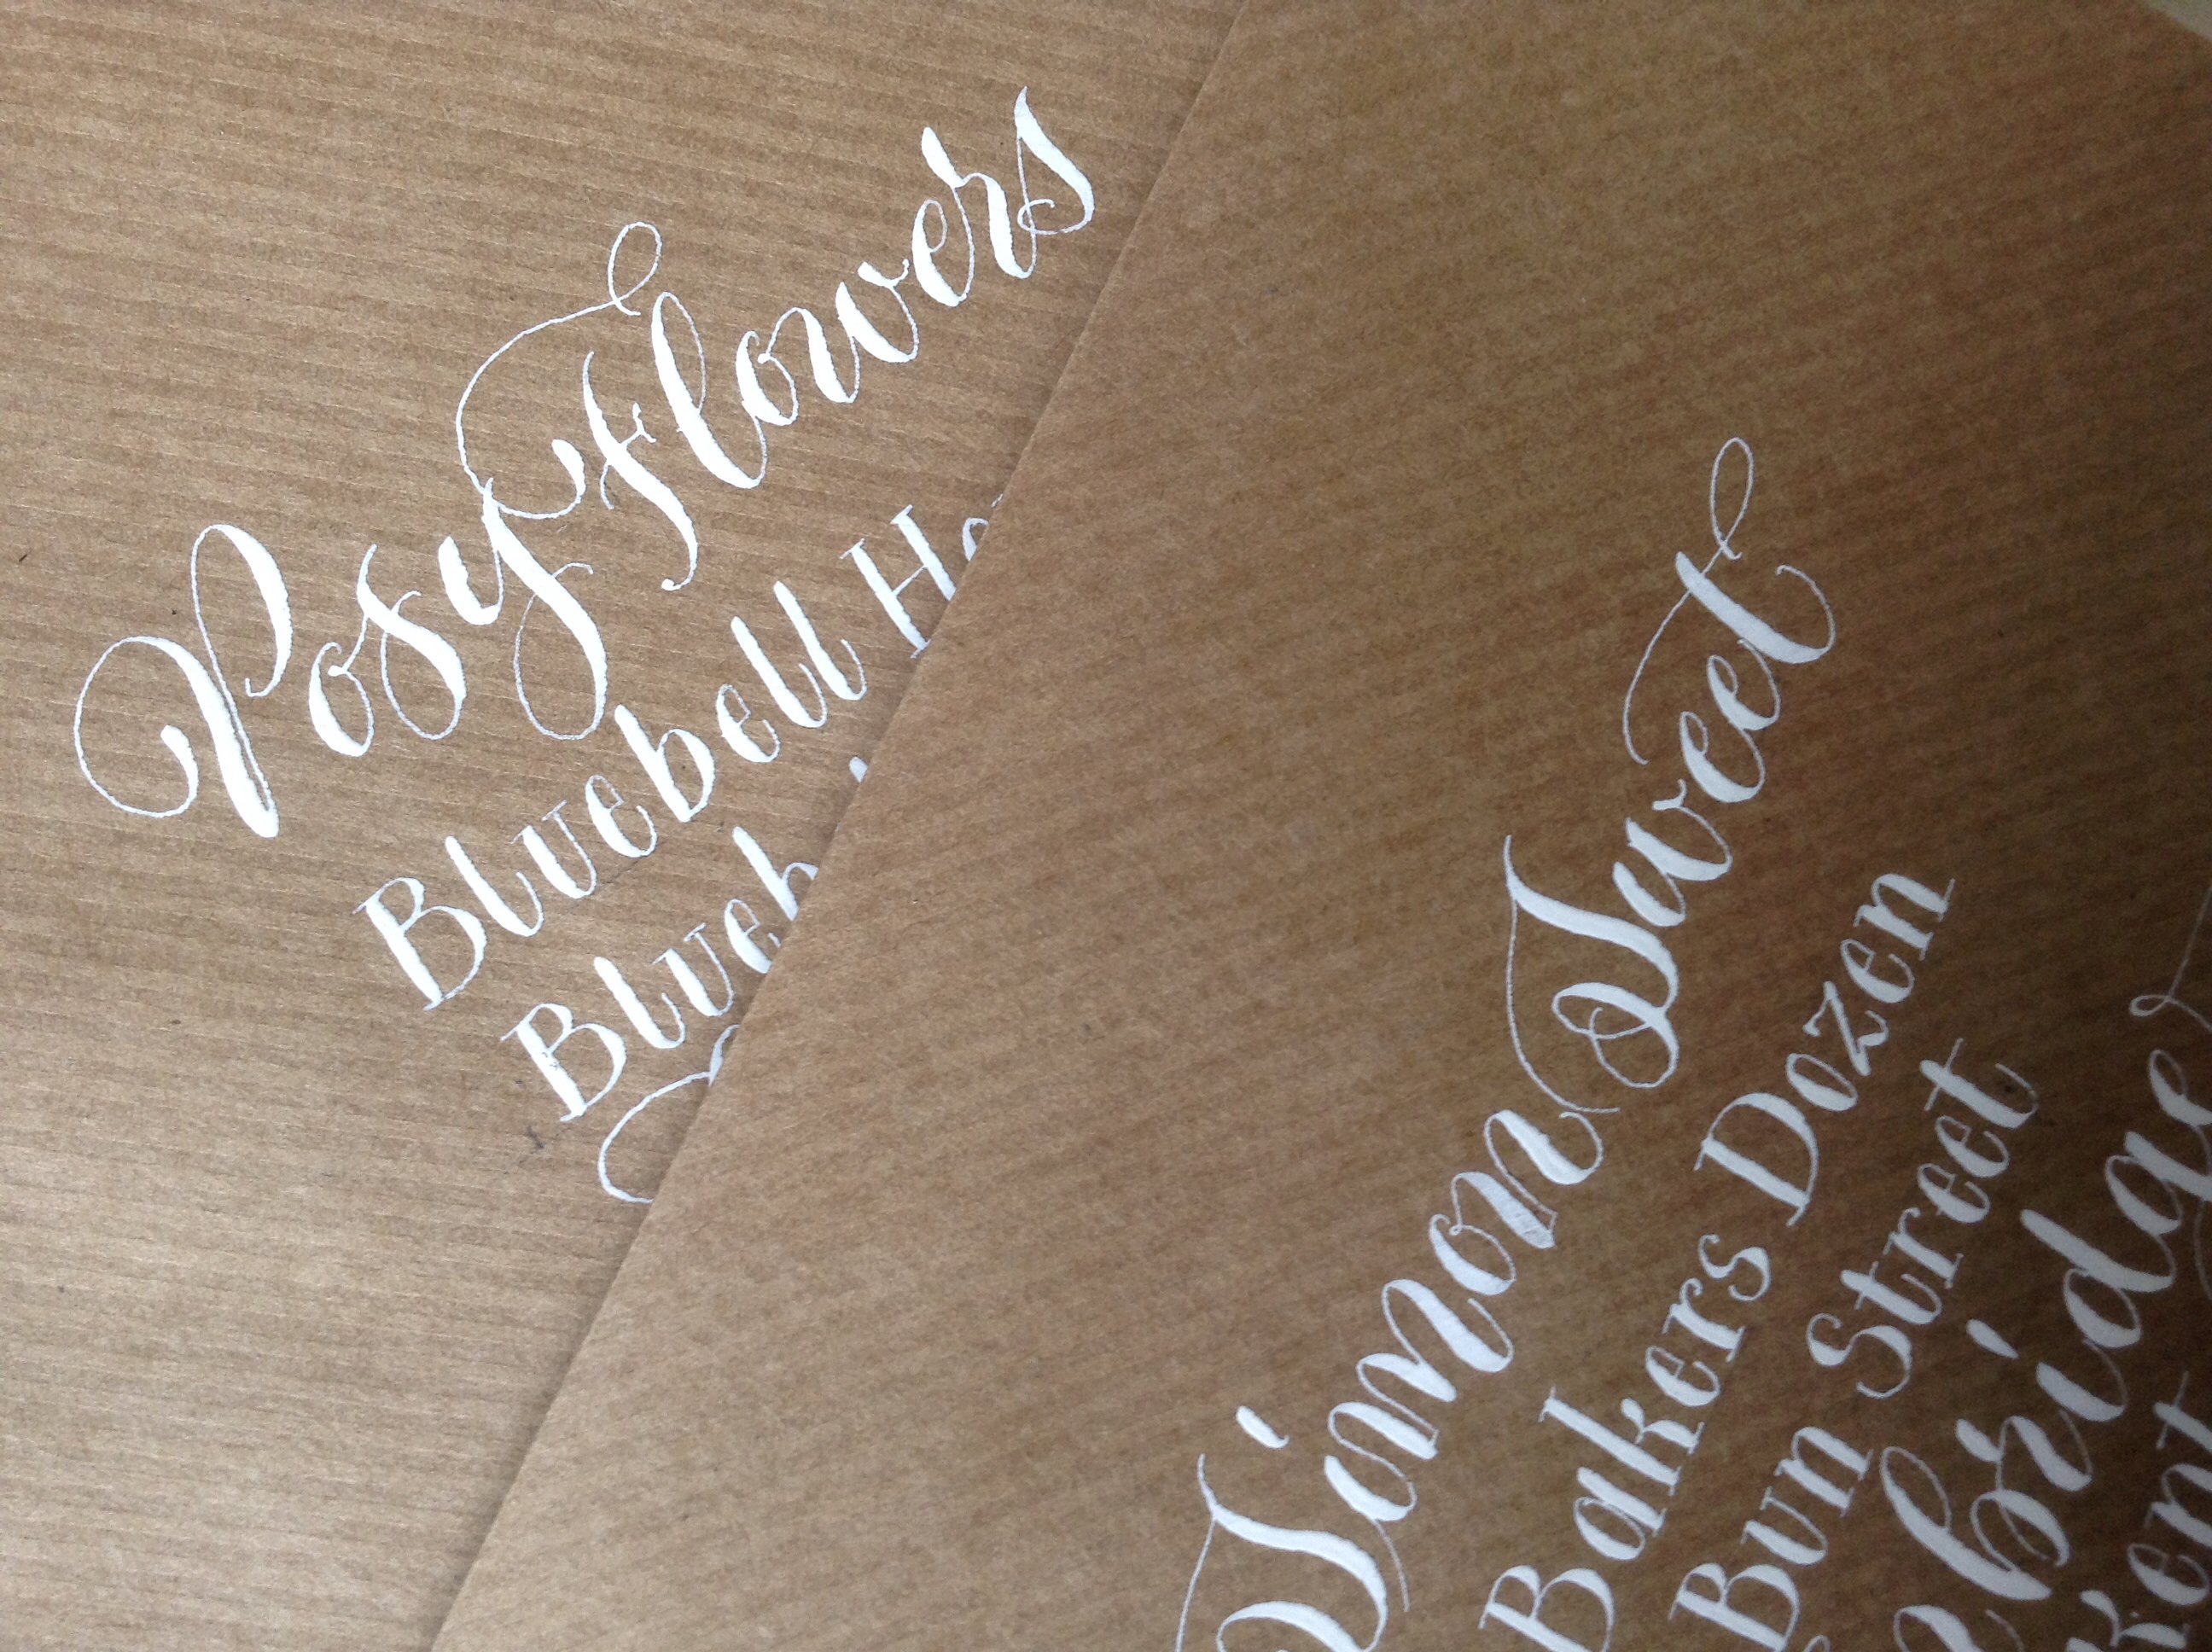 Posy Flowers
Bluebell Ho
Blueb
Simon Sweet
Bakers Dozen
Bun Street
bridge
Kent